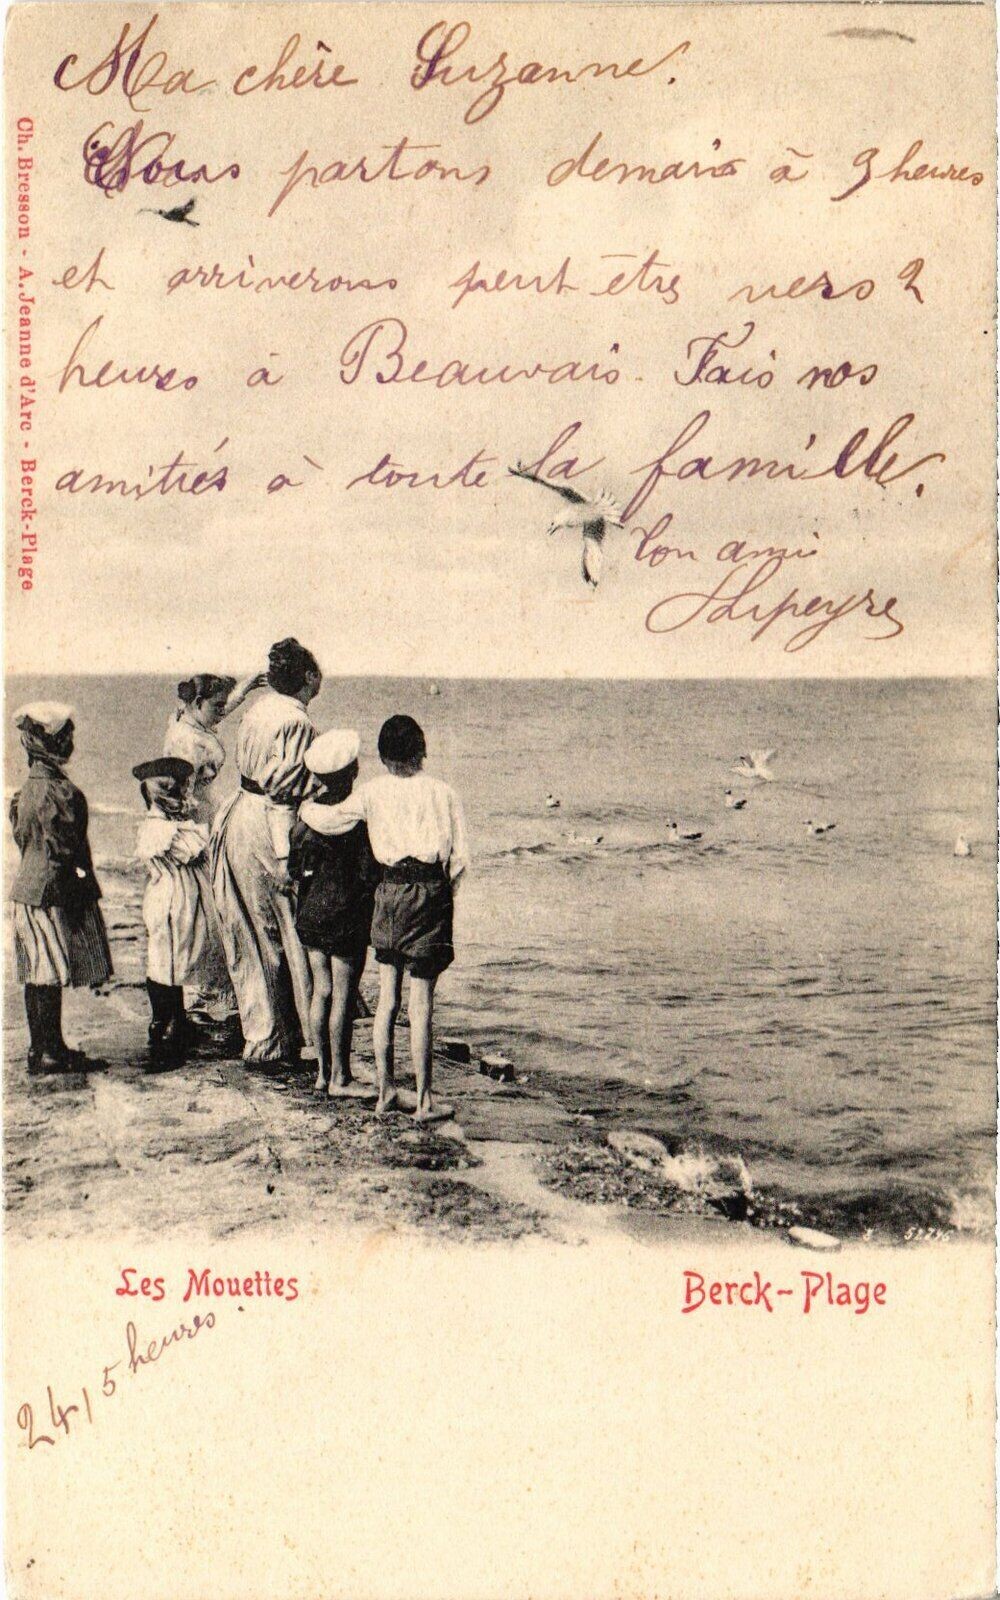 Ma chère Suzanne.
Nous partons demain à 9 heures
et arriverons peut être vers 2
heures à Beauvais. Fais nos
amitiés à toute la famille.
Ton ami
Ch. Bresson - A. Jeanne d'Arc - Berck-Plage
52296
Les Mouettes
Berck-Plage
24, 5 heures.